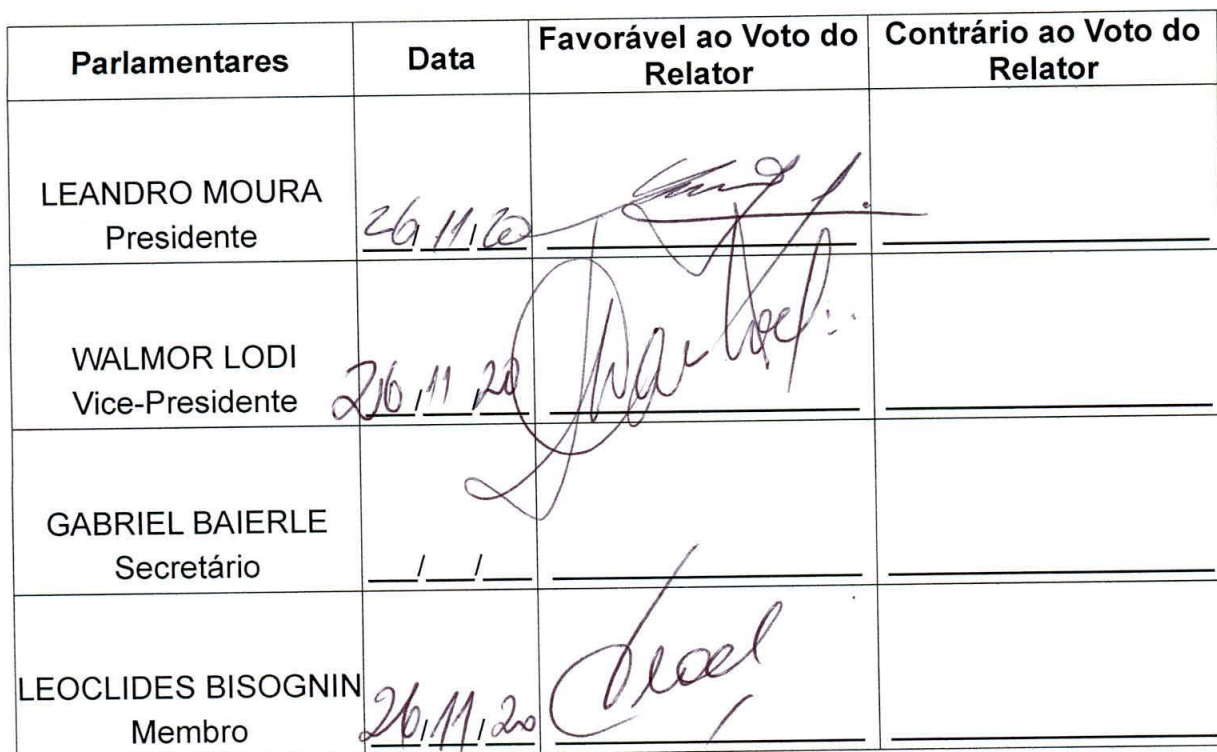 Parlamentares Data Favorável ao Voto do Relator Contrário ao Voto do Relator
LEANDRO MOURA
Presidente 26/11/20
WALMOR LODI
Vice-Presidente 26/11/20
GABRIEL BAIERLE
Secretário __/__/__
LEOCLIDES BISOGNIN
Membro 26/11/20